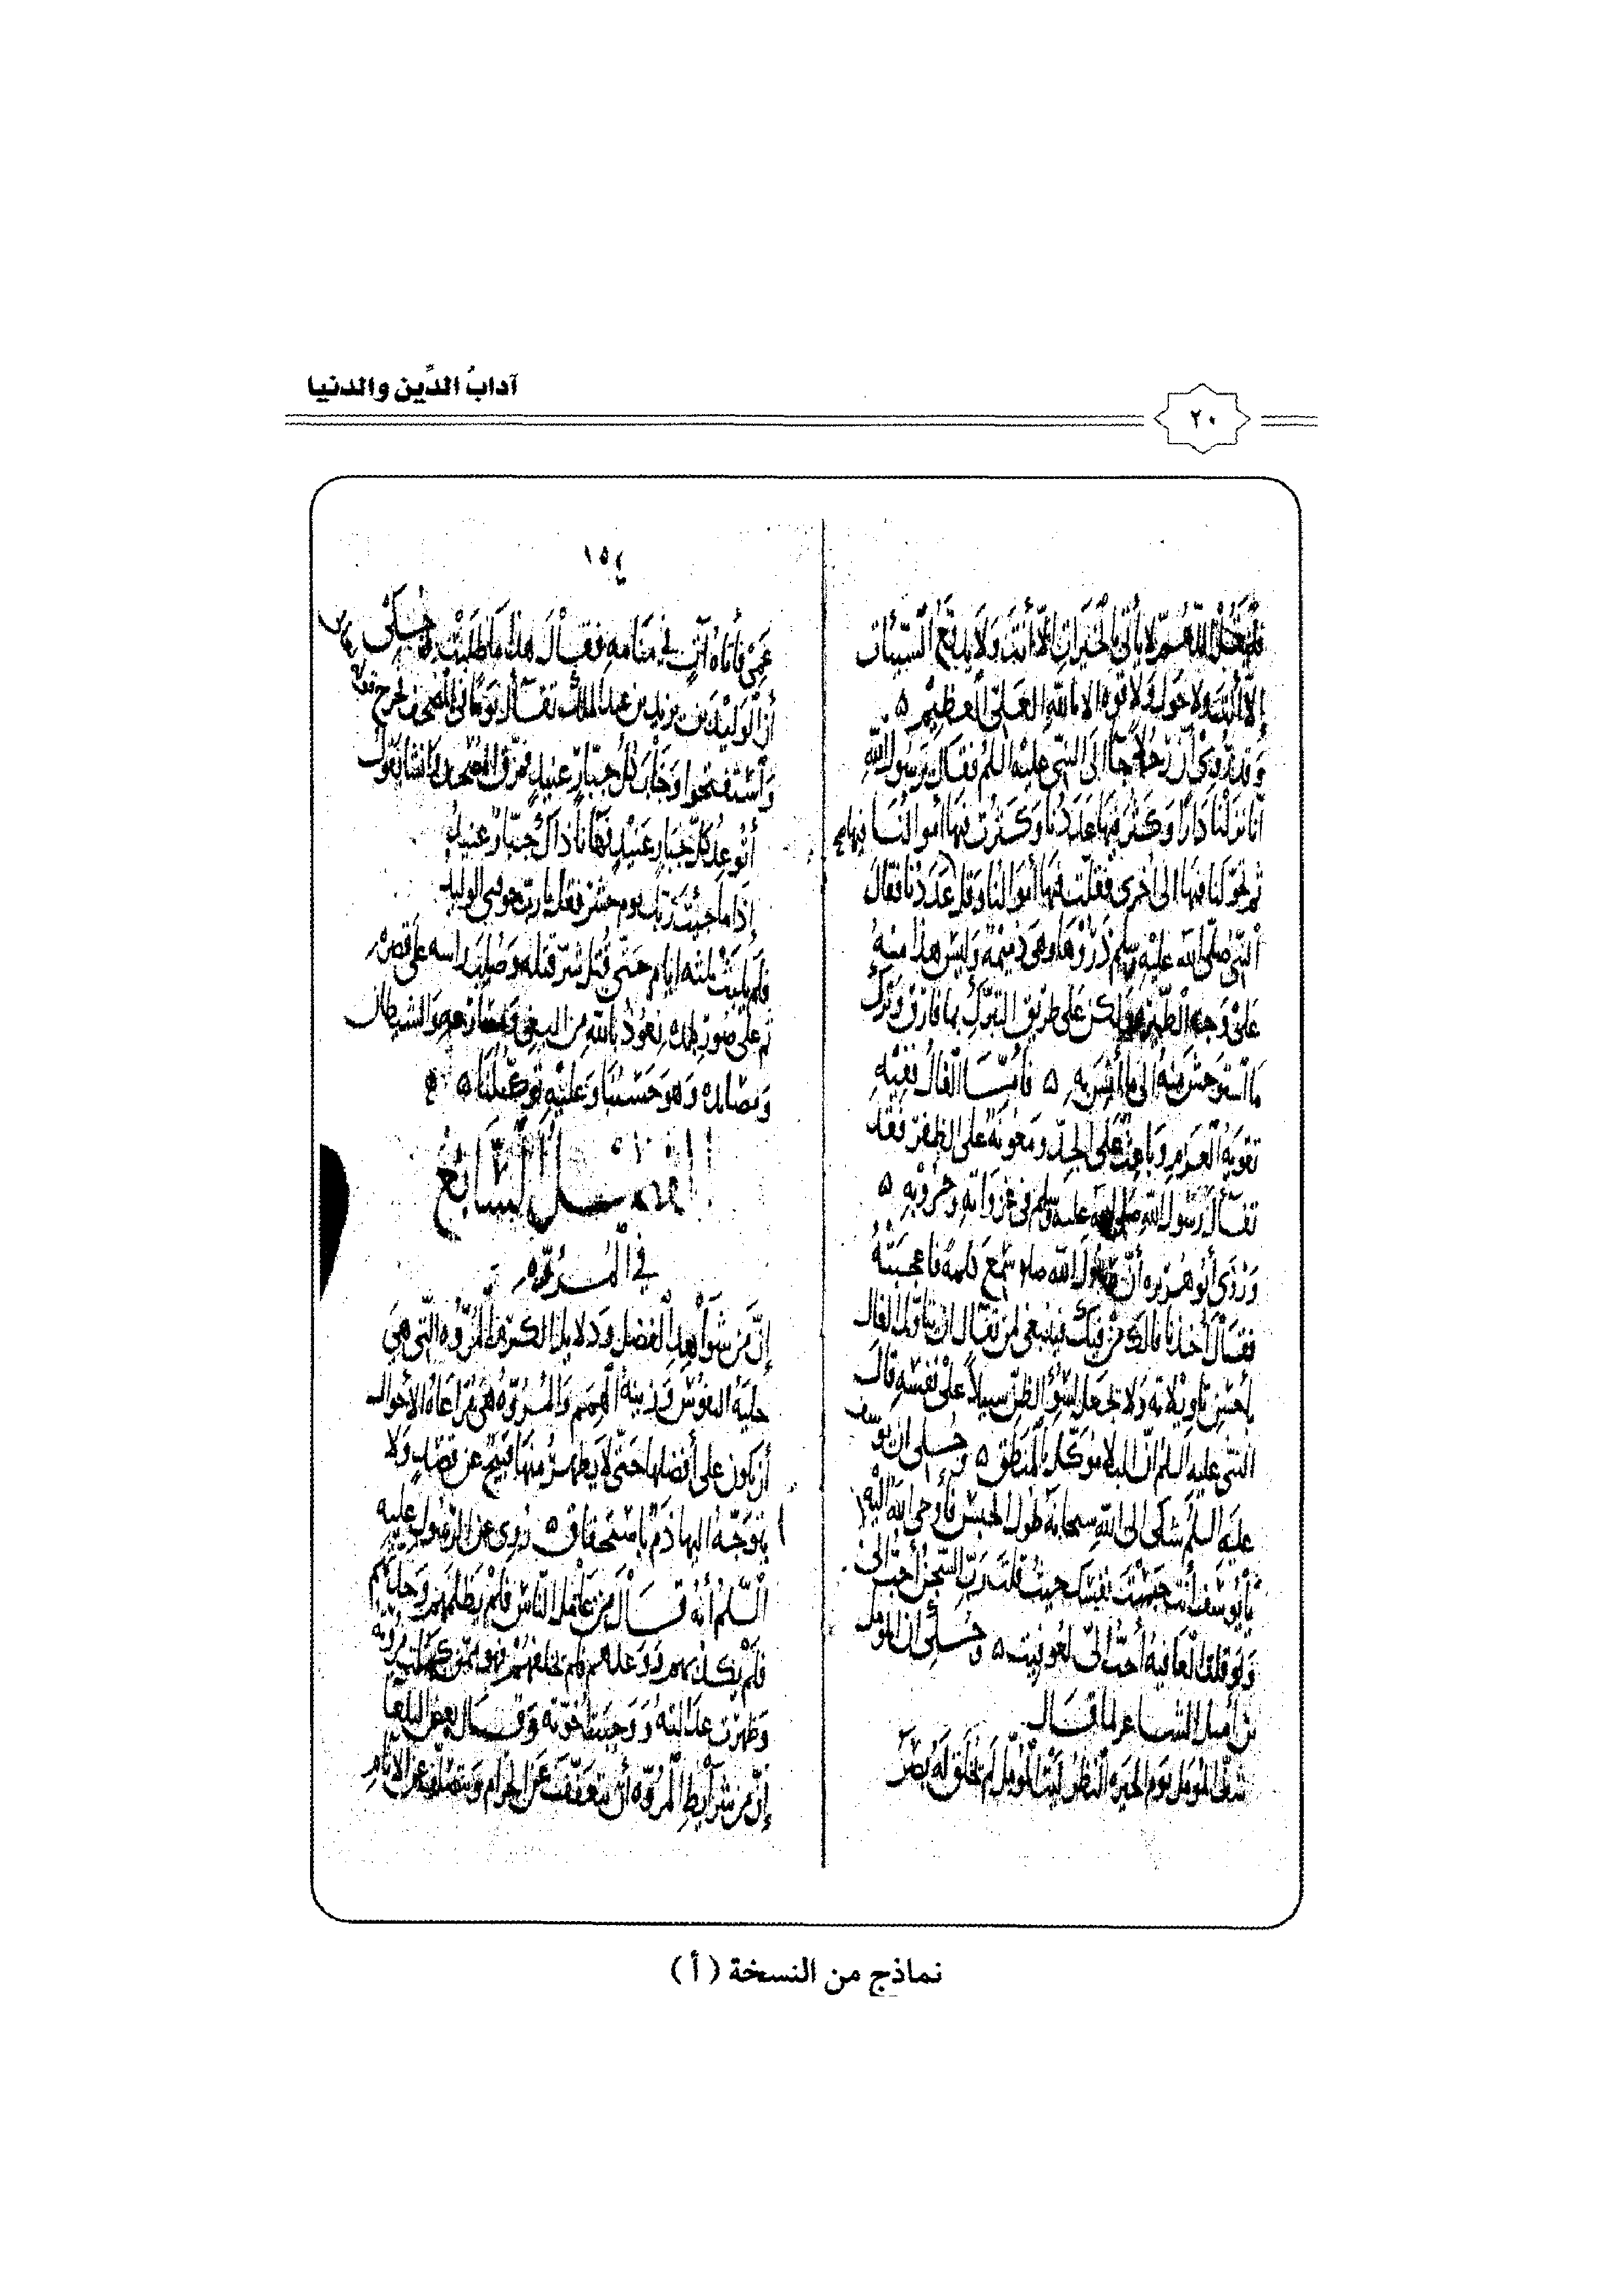 آدابُ الدِّين والدنيا
٢٠
فليقل اللهم لا يأتي بالخيرات إلا أنت ولا يدفع السيئات
إلا أنت ولا حول ولا قوه الا بالله العلي العظيم ه
وقد روي أن رجلا جا الى النبي عليه السلم فقال يرسول الله
انا نزلنا دارا وكثر فيها عددنا وكثرت فيها أموالنا
ثم تحولنا منها الى اخرى فقلت فيها أموالنا وقل عددنا فقال
النبي صلى الله عليه وسلم ذروها وهي ذميمة وليس هذا منه
على وجه الطيره ولكن على طريق التبرك بها فارق وترك
ما استوحش منه الى ما أنس به ه فأما الفال ففيه
تقوية العزم وباعث على الجد ومعونة على الظفر فقد
تفأل رسول الله صلى الله عليه وسلم في غزواته وحروبه ه
وروى أبو هريره أن رسول الله سمع كلمة فاعجبته
فقال أخذنا فالك من فيك فينبغي لمن تفأل ان يتأول الفال
بأحسن تأويلاته ولا تجعل لسؤ الظن سبيلا على نفسه قال
النبي عليه السلم ان البلا موكل بالمنطق ه وحكى ان يوسف
عليه السلم شكى الى الله سبحانه طول الحبس فأوحى الله اليه
يا يوسف أنت حبست نفسك حيث قلت رب السجن أحب الى
ولو قلت العافية أحب الى لعوفيت ه وحكى ان المومل
بن أميل الشاعر لما قال
شف المومل يوم الحيره النظر ليت المومل لم يخلق له بصر
١٥٤
عمي فأتاه آت في منامه فقال هذا ما طلبت وحكى
أن الوليد بن يزيد بن عبد الملك تفأل يوما في المصحف فخرج
واستفتحوا وخاب كل جبار عنيد فمزق المصحف وانشا يقول
أتوعد كل جبار عنيد فها أنا ذاك جبار عنيد
إذا ما جيت ربك يوم حشر فقل يا رب مزقني الوليد
فلم يلبث أيام حتى قتل شر قتله وصلب راسه على قصره
ثم على سور بلده نعوذ بالله من البغي ومصارعه والشيطان
ومصايده وهو حسبنا وعليه توكلنا ه
الفصل السابع
في المروه
إن من شواهد الفضل ودلايل الكرم المروه التي هي
حلية النفوس وزينة الهمم والمروه هي مراعاة الأحوال
أن يكون على أفضلها حتى لا يظهر منها قبيح عن قصد ولا
يتوجه اليها ذم باستحقاق ه روي عن الرسول عليه
السلم أنه قال من عامل الناس فلم يظلمهم وحدثهم
فلم يكذبهم ووعدهم فلم يخلفهم فهو ممن كملت مروته
وظهرت عدالته ووجبت أخوته وقال بعض البلغا
إن من شرايط المروه أن يتعفف عن الحرام ويتصلف عن الآثام
نماذج من النسخة (أ)